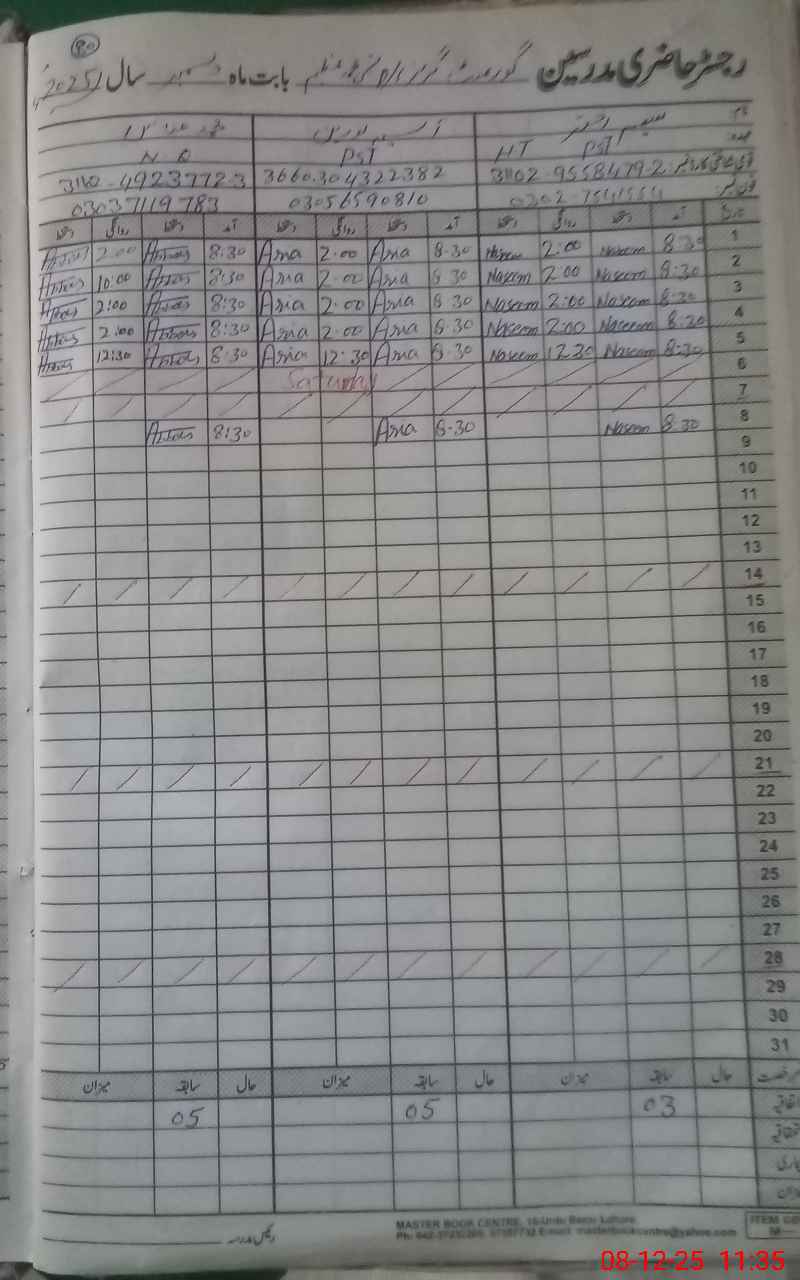 90
رجسٹر حاضری مدرسین گورنمنٹ بابت ماہ دسمبر سال 2025
نام نسیم اختر
عہدہ PST HT PST N Q
31102-9558479-2 3660304322382 31102-4923772-3
فون نمبر 0302-7541554 03056590810 03037119783
تاریخ آمد دستخط روانگی دستخط آمد دستخط روانگی دستخط آمد دستخط روانگی دستخط
1 8:30 Naseem 2:00 8.30 Asia 2.00 Asia 8:30 Abbas 2:00 Abbas
2 8:30 Naseem 2:00 Naseem 8.30 Asia 2.00 Asia 8:30 Abbas 10:00 Abbas
3 8:30 Naseem 2:00 Naseem 8.30 Asia 2.00 Asia 8:30 Abbas 2:00 Abbas
4 8:30 Naseem 2:00 Naseem 8.30 Asia 2.00 Asia 8:30 Abbas 2:00 Abbas
5 8:30 Naseem 12.30 Naseem 8.30 Asia 12:30 Asia 8:30 Abbas 12:30 Abbas
6 Saturday
7
8 8:30 Naseem 8.30 Asia 8:30 Abbas
9
10
11
12
13
14
15
16
17
18
19
20
21
22
23
24
25
26
27
28
29
30
31
رخصت حال سابقہ میزان حال سابقہ میزان حال سابقہ میزان
اتفاقیہ 03 05 05
میزان
رئیس مدرسہ
MASTER BOOK CENTRE, Urdu Bazar Lahore.
08-12-25 11:35